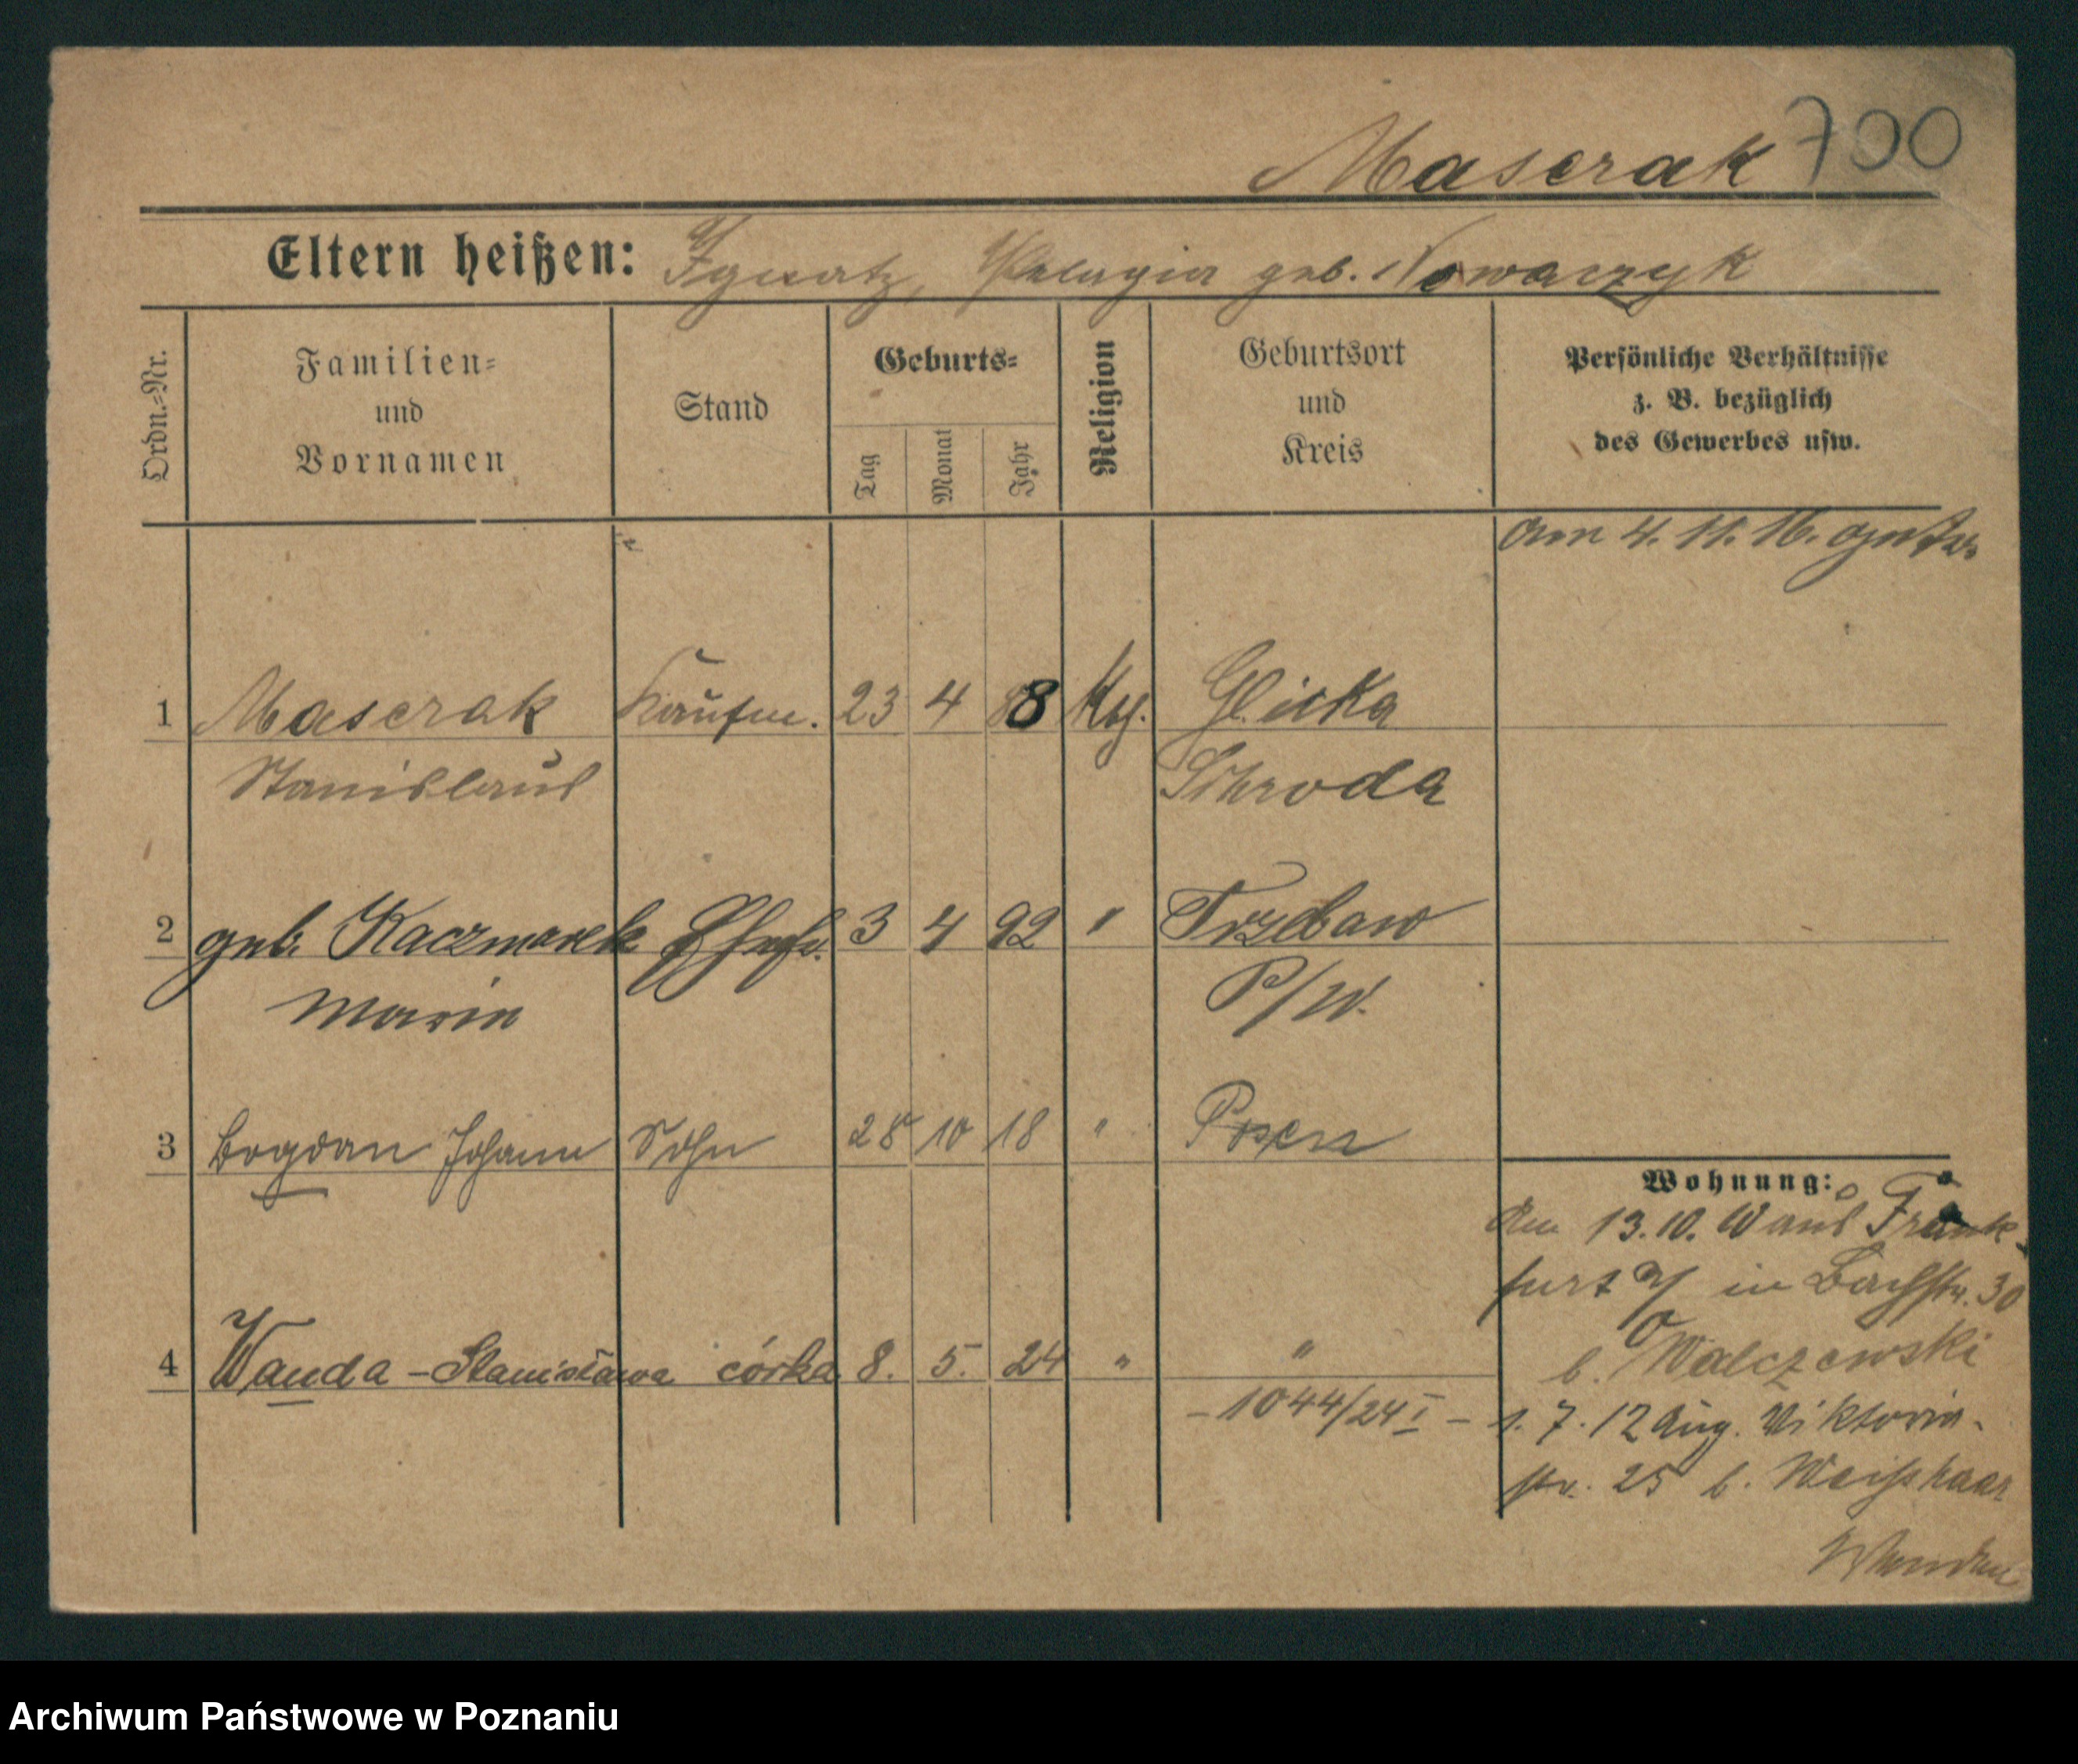 Mascrak 700
Eltern heißen: Ignatz, Pelagia geb. Nowaczyk
Ordn.=Nr.
Familien=
und
Vornamen
Stand
Geburts=
Tag
Monat
Jahr
Religion
Geburtsort
und
Kreis
Persönliche Verhältnisse
z. B. bezüglich
des Gewerbes usw.
am 4. 11. 16.
1 Mascrak Kaufm. 23 4 88 Kth. Glinka
Stanislaus Schroda
2 geb. Kaczmarek Ehefr. 3 4 92 " Trzebaw
Maria P/W.
3 Bogdan Johann Sohn 28 10 18 " Posen
Wohnung:
den 13. 10. 10 aus Frank-
furt a/O in Bachstr. 30
4 Wanda-Stanisława córka 8. 5. 24 " "
b. Walczewski
- 1044/24 I -
1. 7. 12 Aug. Viktoria-
str. 25 b. Weißhaar
Archiwum Państwowe w Poznaniu